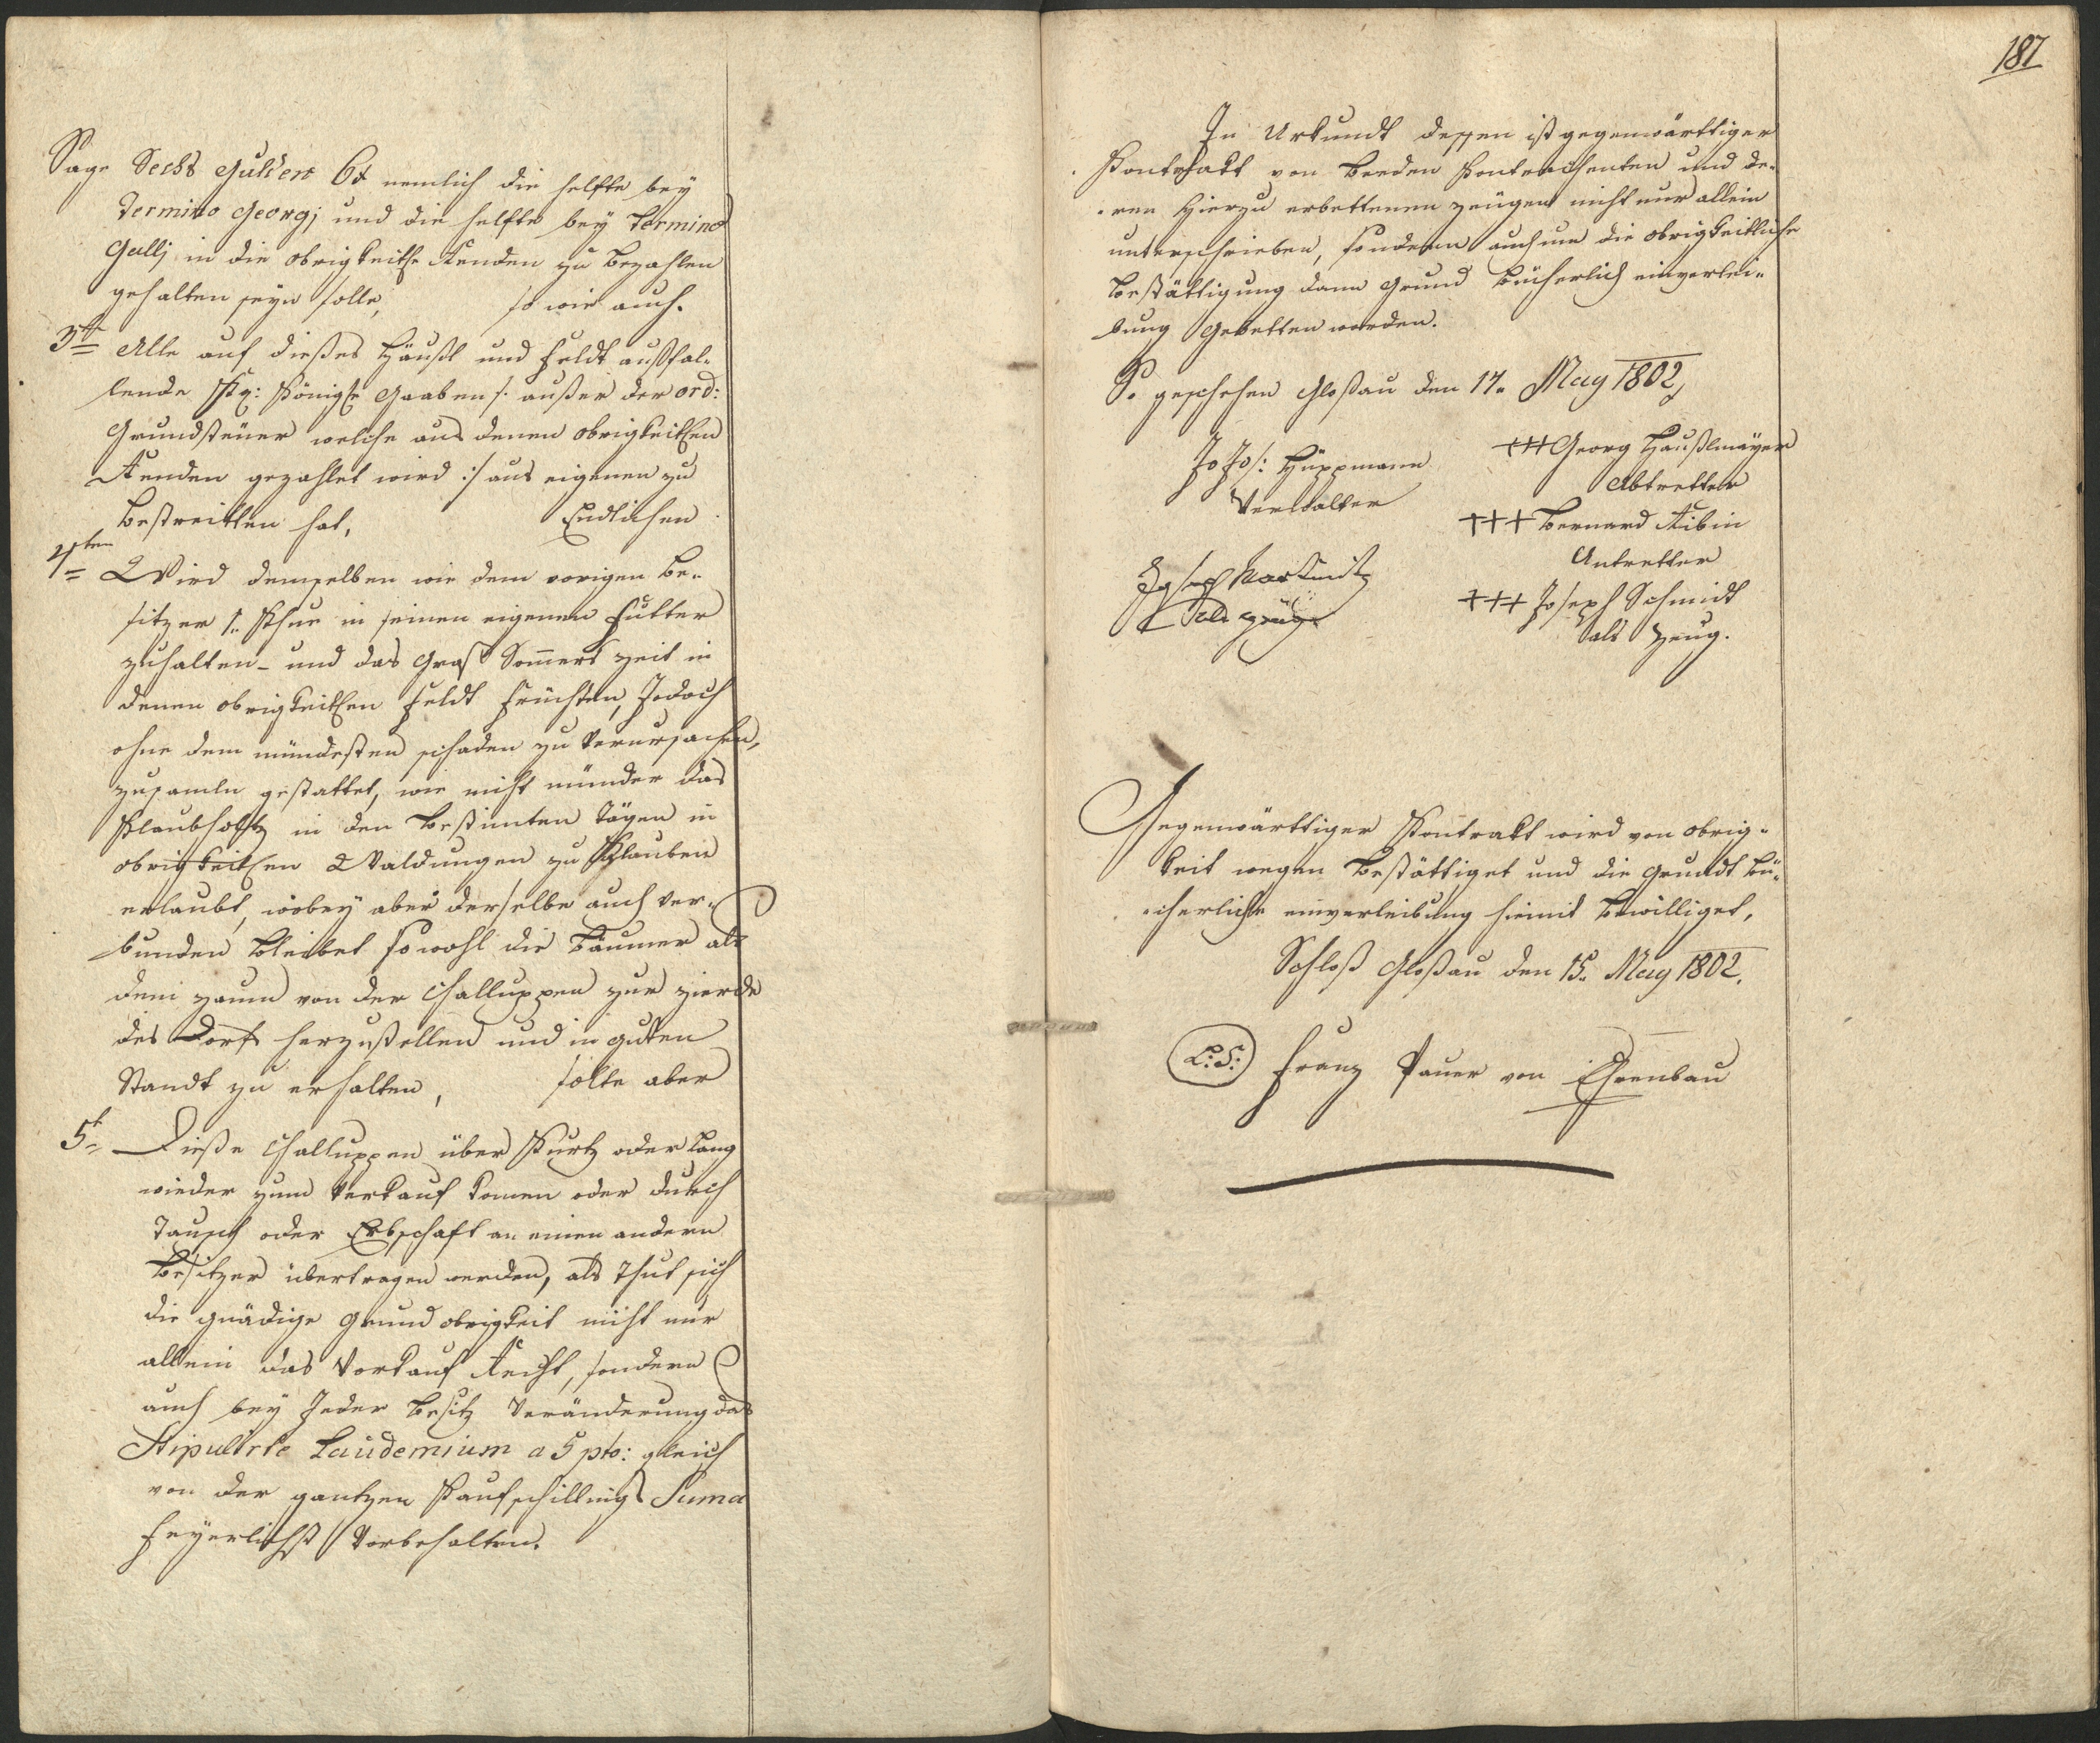 Sage Sechs Gulden 6 f nemlich die helfte bey
Termino Georgj und die helfte bey Termino
Gallj in die obrigkeitlhe Renden zu bezahlen
gehalten seyn solle, so wie auch.
3t Alle auf dießes Häußl und Feldt außfal-
lende Kk: Königlhe Gaaben /: außer der ord:
Grundsteüer welche aus denen obrigkeitlhen
Renden gezahlet wird :/ aus eigenen zu
bestreitten hat, Endlichen
4ten Wird demselben wie dem vorigen Be-
sitzer 1. Khue in seinen eigenen Futter
zuhalten – und das Graß Somers Zeit in
denen obrigkeitlhen Feldt Früchten, Jedoch
ohne dem mündesten schaden zu Verursachen,
zusameln gestattet, wie nicht münder das
Klaubholtz in den bestimten Tägen in
obrigkeitlhen Waldungen zu Klauben
erlaubt, wobey aber derselbe auch ver-
bunden bleibet sowohl die Bäumer als
dem zaum von der Challuppen zur zierde
des Dorfs herzustellen und in guten
Standt zu erhalten, solte aber
5t Dieße Challuppen über Kurtz oder lang
wieder zum Verkauf komen oder durch
Tausch oder Erbschaft an einen andern
Besitzer übertragen werden, als thut sich
die gnädige Grund obrigkeit nicht nur
allein das Vorkauf Recht, sondern
auch bey Jeder Besitz Veränderung das
Stipulirte Laudemium a 5 pto: gleich
von der gantzen Kaufschillings Suma
feyerlichst Vorbehalten.
187
In Urkundt dessen ist gegenwärttiger
Kontrakt von beeden Kontrahenten und de-
ren hierzu erbettenen Zeugen nicht nur allein
unterschrieben, sondern auch um die obrigkeitliche
Bestättigung dann Grund bücherlich einverlei-
bung gebetten worden.
So geschehen Gloßau den 17. May 1802,
Jo Jos: Hüppmann
Verwalter
+++ Georg Häußlmayer
Abtretter
+++ Bernard Ribin
Antretter
Joseph
als Zeüge
+++ Joseph Schmidt
als Zeüg.
Gegenwärttiger Kontrakt wird von obrig-
keit wegen bestättiget und die Grundt bü-
cherliche einverleibung hiemit bewilliget,
Schloß Gloßau den 15. May 1802.
L:S: Franz Pauer von Ehrenbau